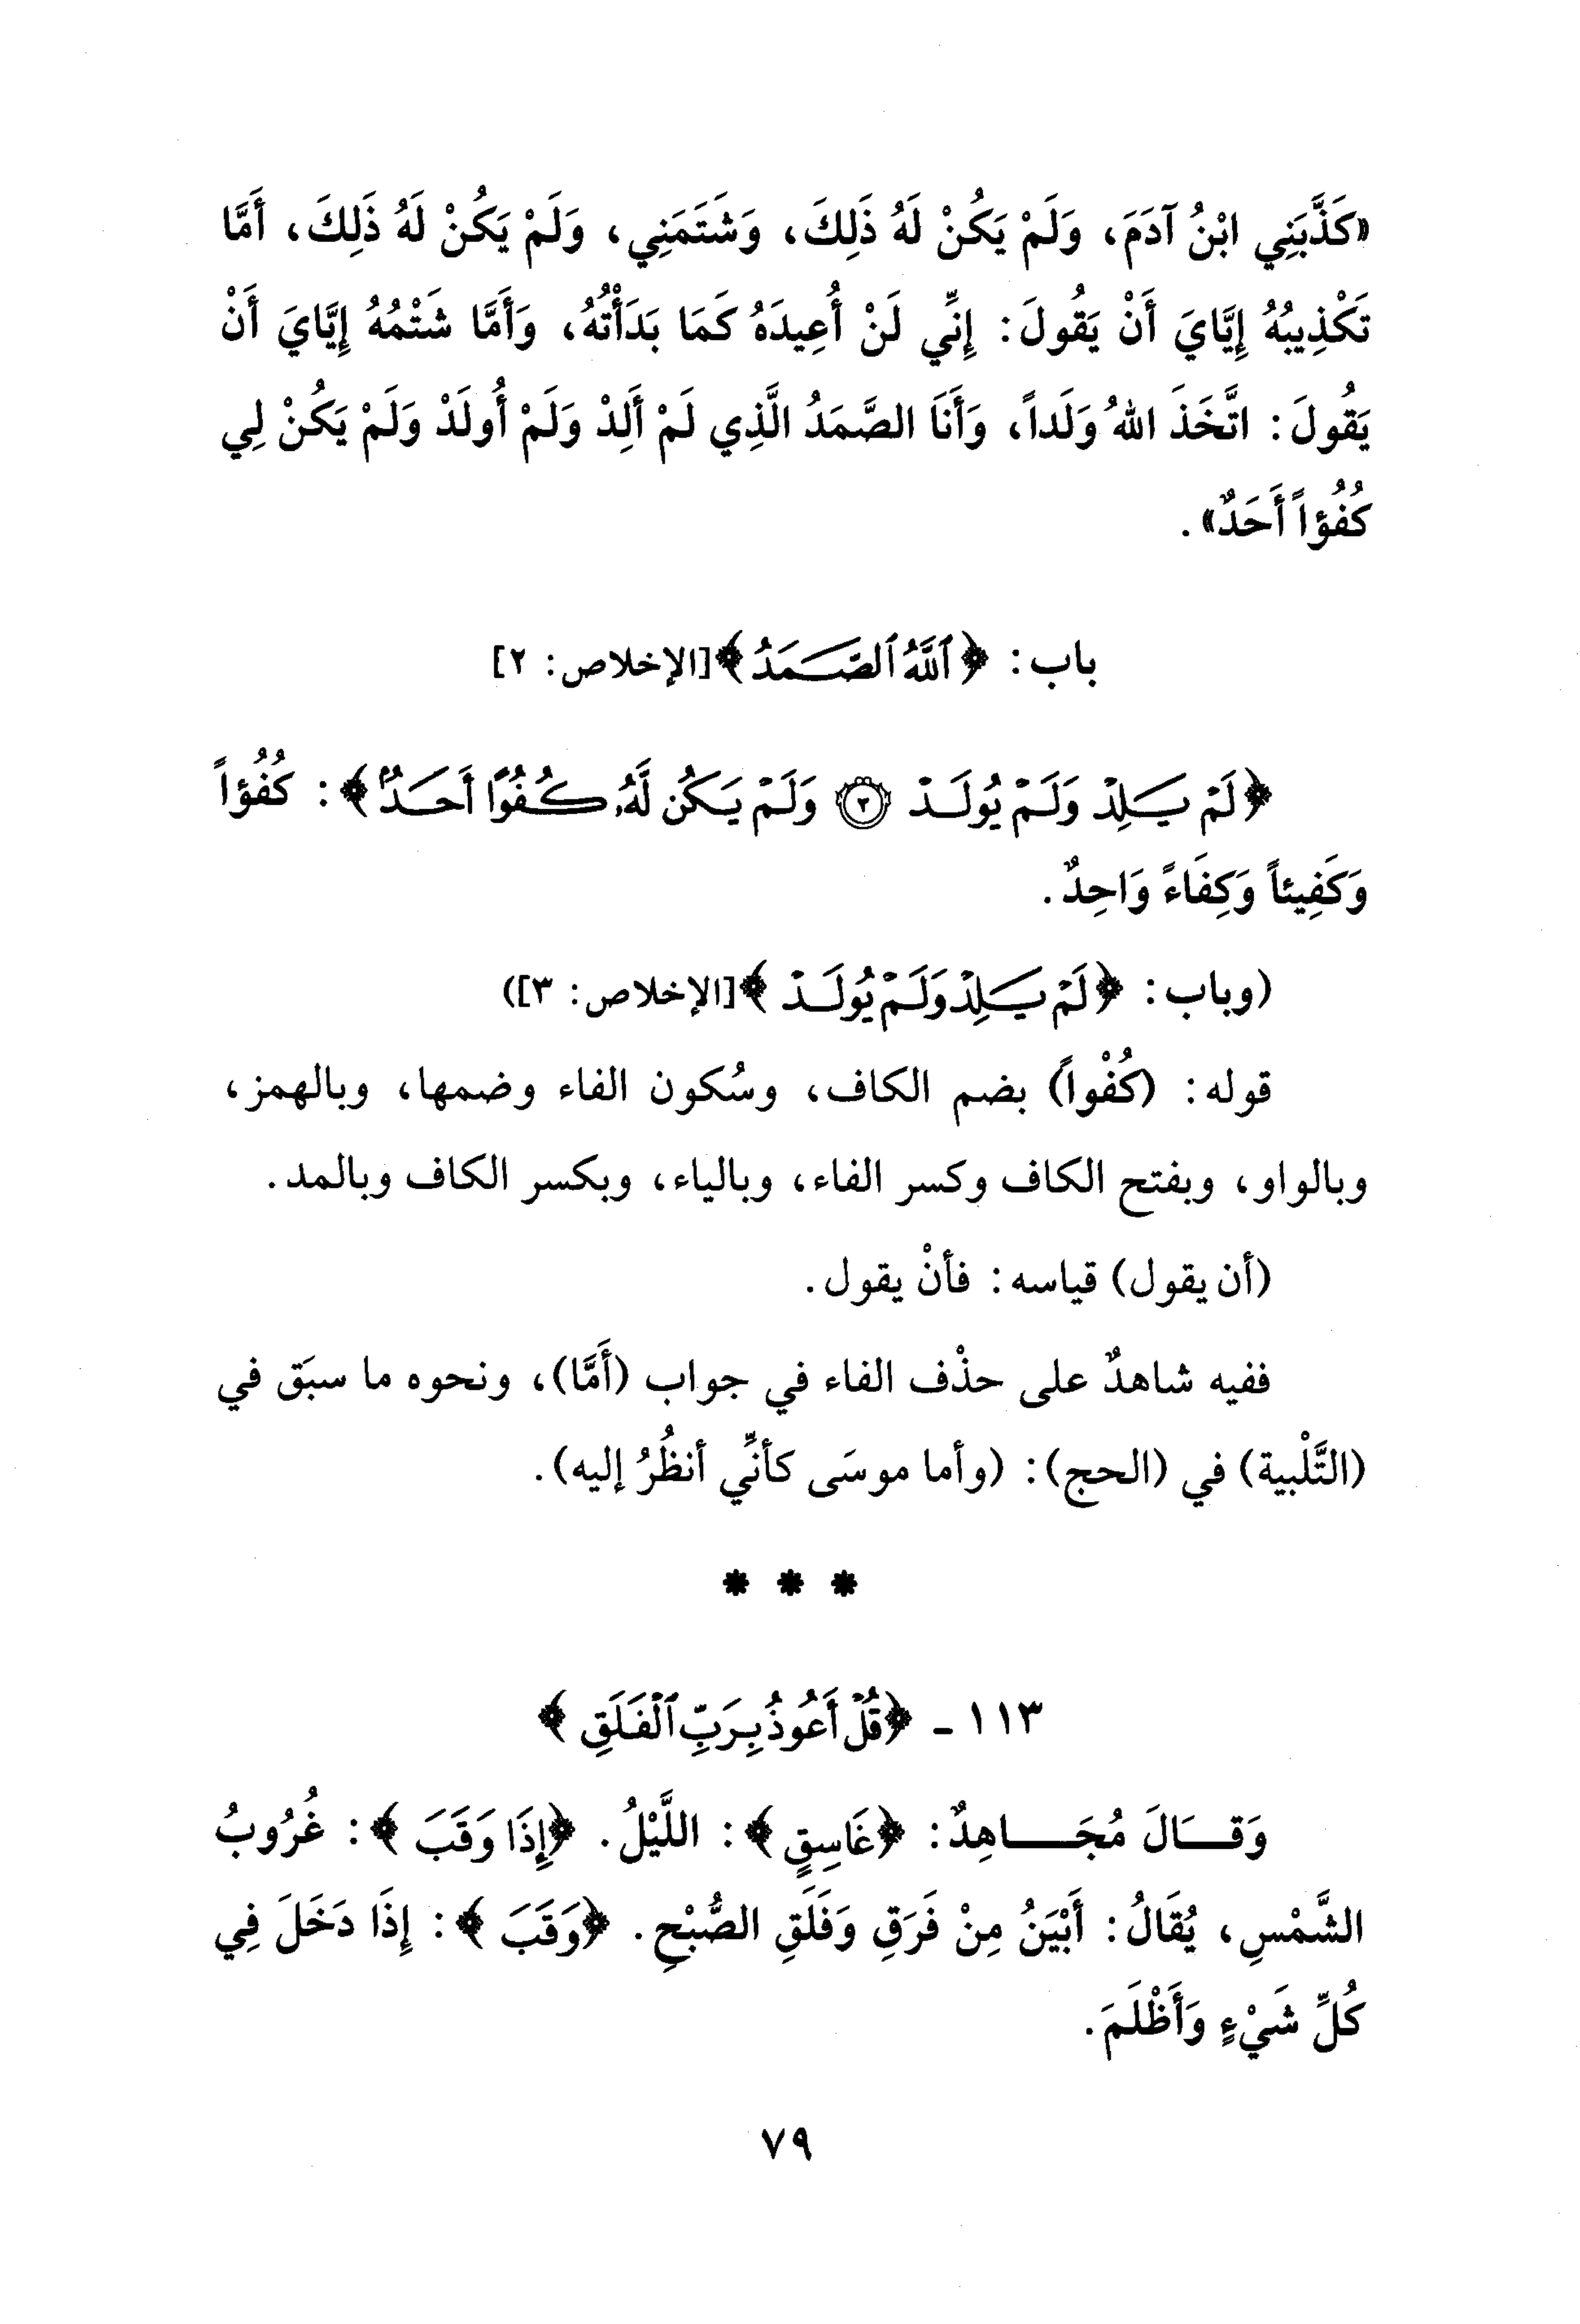 «كَذَّبَنِي ابْنُ آدَمَ، وَلَمْ يَكُنْ لَهُ ذَلِكَ، وَشَتَمَنِي، وَلَمْ يَكُنْ لَهُ ذَلِكَ، أَمَّا
تَكْذِيبُهُ إِيَّايَ أَنْ يَقُولَ: إِنِّي لَنْ أُعِيدَهُ كَمَا بَدَأْتُهُ، وَأَمَّا شَتْمُهُ إِيَّايَ أَنْ
يَقُولَ: اتَّخَذَ اللهُ وَلَداً، وَأَنَا الصَّمَدُ الَّذِي لَمْ أَلِدْ وَلَمْ أُولَدْ وَلَمْ يَكُنْ لِي
كُفُؤاً أَحَدٌ».
باب: ﴿ٱللَّهُ ٱلصَّمَدُ﴾[الإخلاص: ٢]
﴿لَمْ يَلِدْ وَلَمْ يُولَدْ ۝٣ وَلَمْ يَكُن لَّهُۥ كُفُوًا أَحَدٌۢ﴾: كُفُؤاً
وَكَفِيئاً وَكِفَاءً وَاحِدٌ.
(وباب: ﴿لَمْ يَلِدْ وَلَمْ يُولَدْ﴾[الإخلاص: ٣])
قوله: (كُفْواً) بضم الكاف، وسُكون الفاء وضمها، وبالهمز،
وبالواو، وبفتح الكاف وكسر الفاء، وبالياء، وبكسر الكاف وبالمد.
(أن يقول) قياسه: فأنْ يقول.
ففيه شاهدٌ على حذْف الفاء في جواب (أَمَّا)، ونحوه ما سبَق في
(التَّلْبية) في (الحج): (وأما موسَى كأنِّي أنظُرُ إليه).
* * *
١١٣ - ﴿قُلْ أَعُوذُ بِرَبِّ ٱلْفَلَقِ﴾
وَقَالَ مُجَاهِدٌ: ﴿غَاسِقٍ﴾: اللَّيْلُ. ﴿إِذَا وَقَبَ﴾: غُرُوبُ
الشَّمْسِ، يُقَالُ: أَبْيَنُ مِنْ فَرَقِ وَفَلَقِ الصُّبْحِ. ﴿وَقَبَ﴾: إِذَا دَخَلَ فِي
كُلِّ شَيْءٍ وَأَظْلَمَ.
٧٩